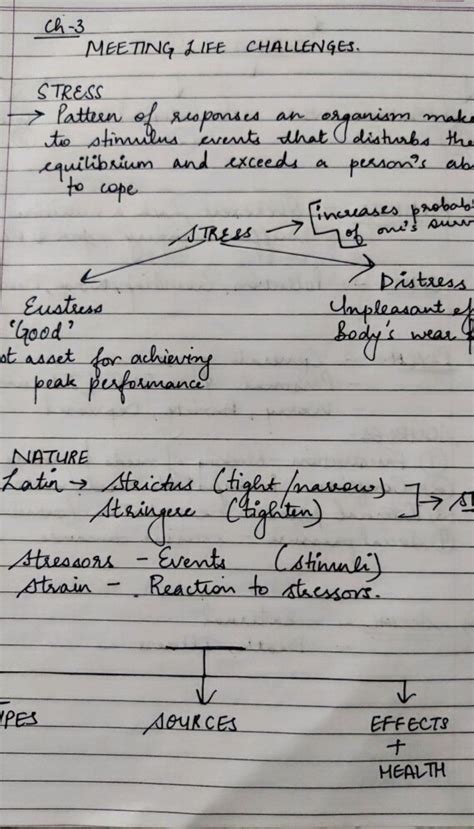 Ch-3
MEETING LIFE CHALLENGES.
STRESS
→ Pattern of responses an organism make
to stimulus events that disturbs the
equilibrium and exceeds a person's ab
to cope
STRESS → increases probab
of one's surv
Eustress
'Good'
st asset for achieving
peak performance
Distress
Unpleasant ef
Body's wear
NATURE
Latin → Strictus (tight/narrow)
Stringere (tighten) → St
Stressors - Events (stimuli)
Strain - Reaction to stressors.
YPES SOURCES EFFECTS
+
HEALTH